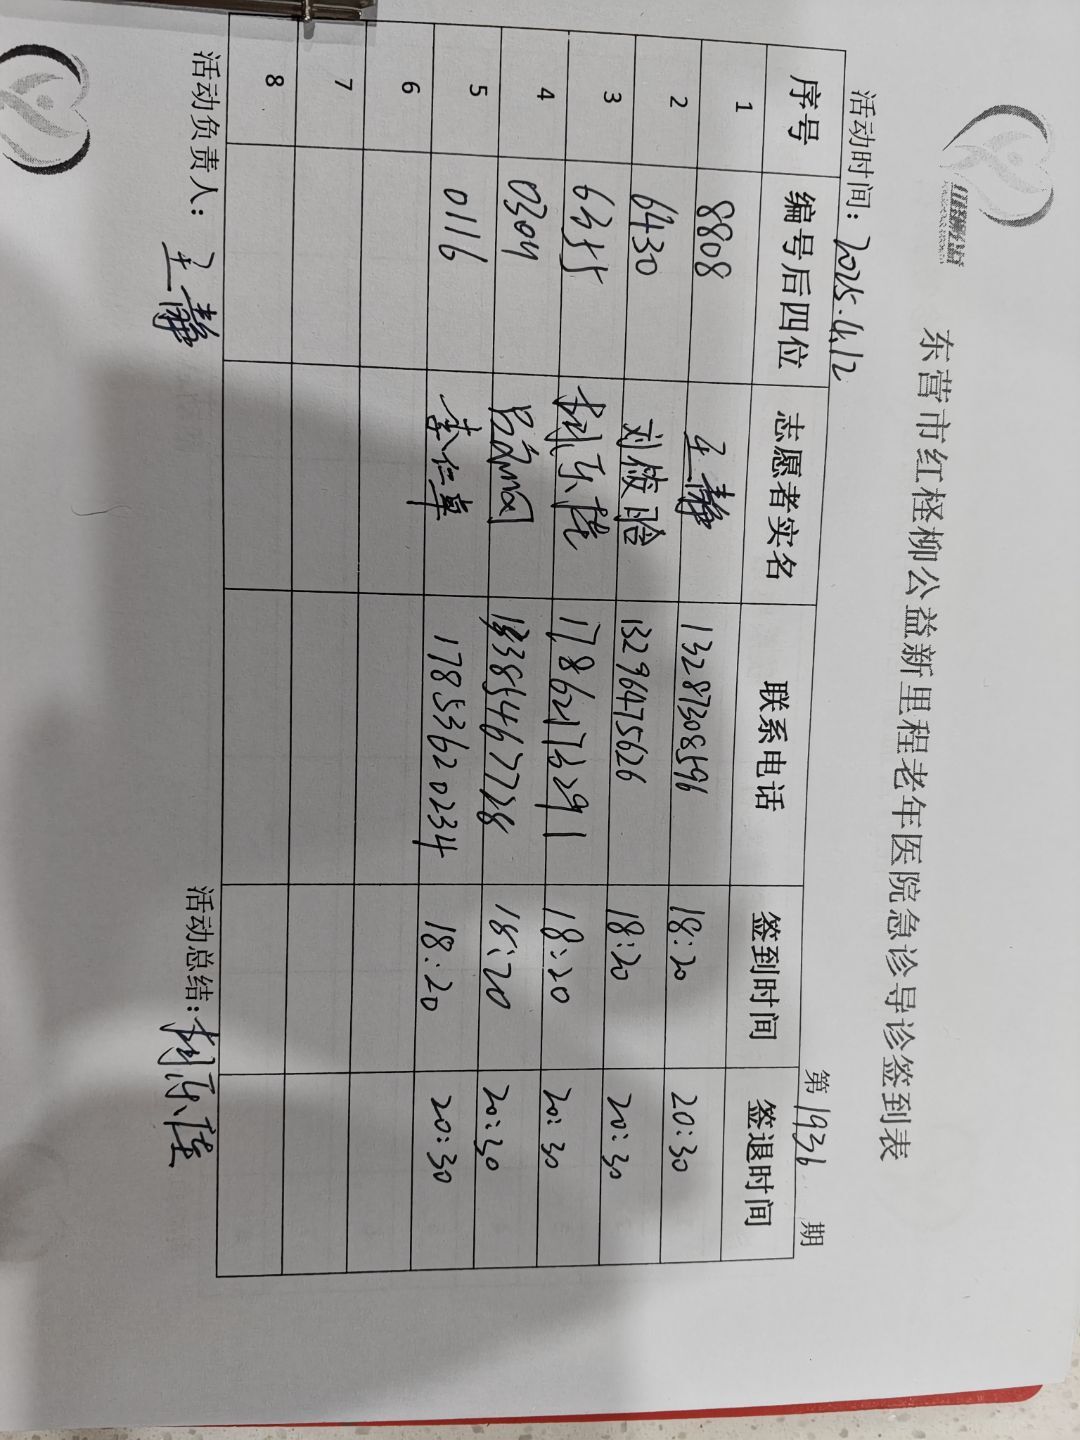 东营市红柽柳公益新里程老年医院急诊导诊签到表
活动时间：2025.4.12 第1936期
序号 编号后四位 志愿者实名 联系电话 签到时间 签退时间
1 8808 王静 13287308596 18:20 20:30
2 6430 刘筱晗 13296475626 18:20 20:30
3 6355 18:20 20:30
4 0304 18:20 20:30
5 0116 李仁卓 17853620234 18:20 20:30
6
7
8
活动负责人：王静 活动总结：